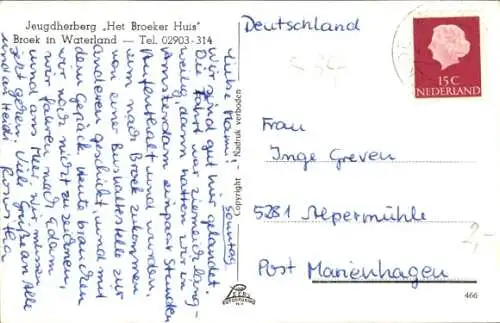 Jeugdherberg „Het Broeker Huis"
Broek in Waterland — Tel. 02903-314
Sonntag
Liebe Mammi!
Wir sind gut hier gelandet.
Die Fahrt war ziemlich lang-
weilig, dann hatten wir in
Amsterdam ein paar Stunden
Aufenthalt und wurden,
um nach Broek zu kommen
von einer Bushaltestelle zur
anderen geschickt, und mit
dem Gepäck. Heute brauchten
wir noch nicht zu zeichnen,
wir fahren nach Edam
und ans Meer. Wir müssen
jetzt gehen. Viele Grüße an Alle
und an Heidi
Roswitha
Copyright - Nadruk verboden
466
Deutschland
15 C
NEDERLAND
Frau
Inge Greven
5281 Alpermühle
Post Marienhagen
2,-